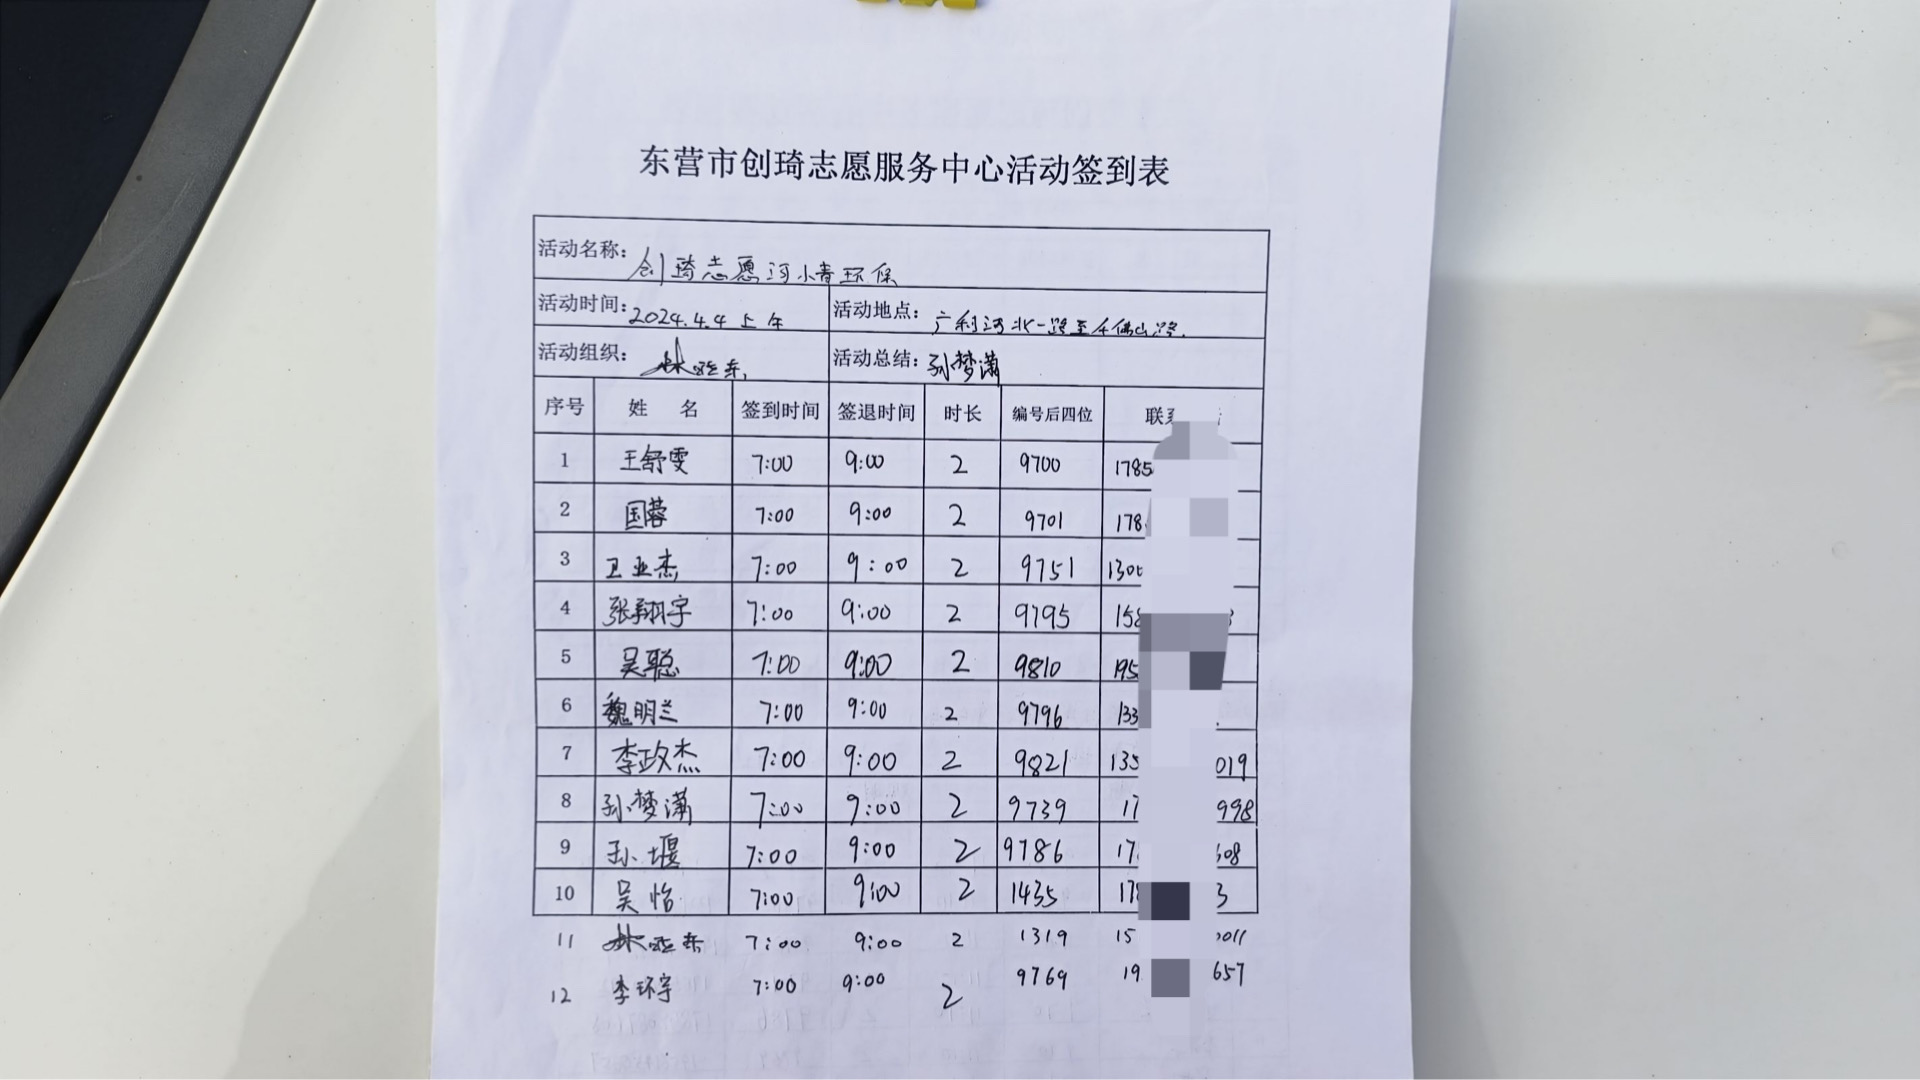 东营市创琦志愿服务中心活动签到表
活动名称: 创琦志愿河小青环保
活动时间: 2024.4.4 上午 活动地点: 广利河北一路至千佛山路.
活动组织: 林 东 活动总结: 孙梦潇
序号 姓 名 签到时间 签退时间 时长 编号后四位 联
1 王舒雯 7:00 9:00 2 9700 1785
2 国蓉 7:00 9:00 2 9701 178
3 卫亚杰 7:00 9:00 2 9751 130
4 张翔宇 7:00 9:00 2 9795 15
5 吴聪 7:00 9:00 2 9810 195
6 魏明兰 7:00 9:00 2 9796 133
7 李政杰 7:00 9:00 2 9821 135 019
8 孙梦潇 7:00 9:00 2 9739 17 998
9 孙堰 7:00 9:00 2 9786 17 08
10 吴怡 7:00 9:00 2 1435 17 3
11 林 东 7:00 9:00 2 1319 15 011
12 李环宇 7:00 9:00 2 9769 19 657